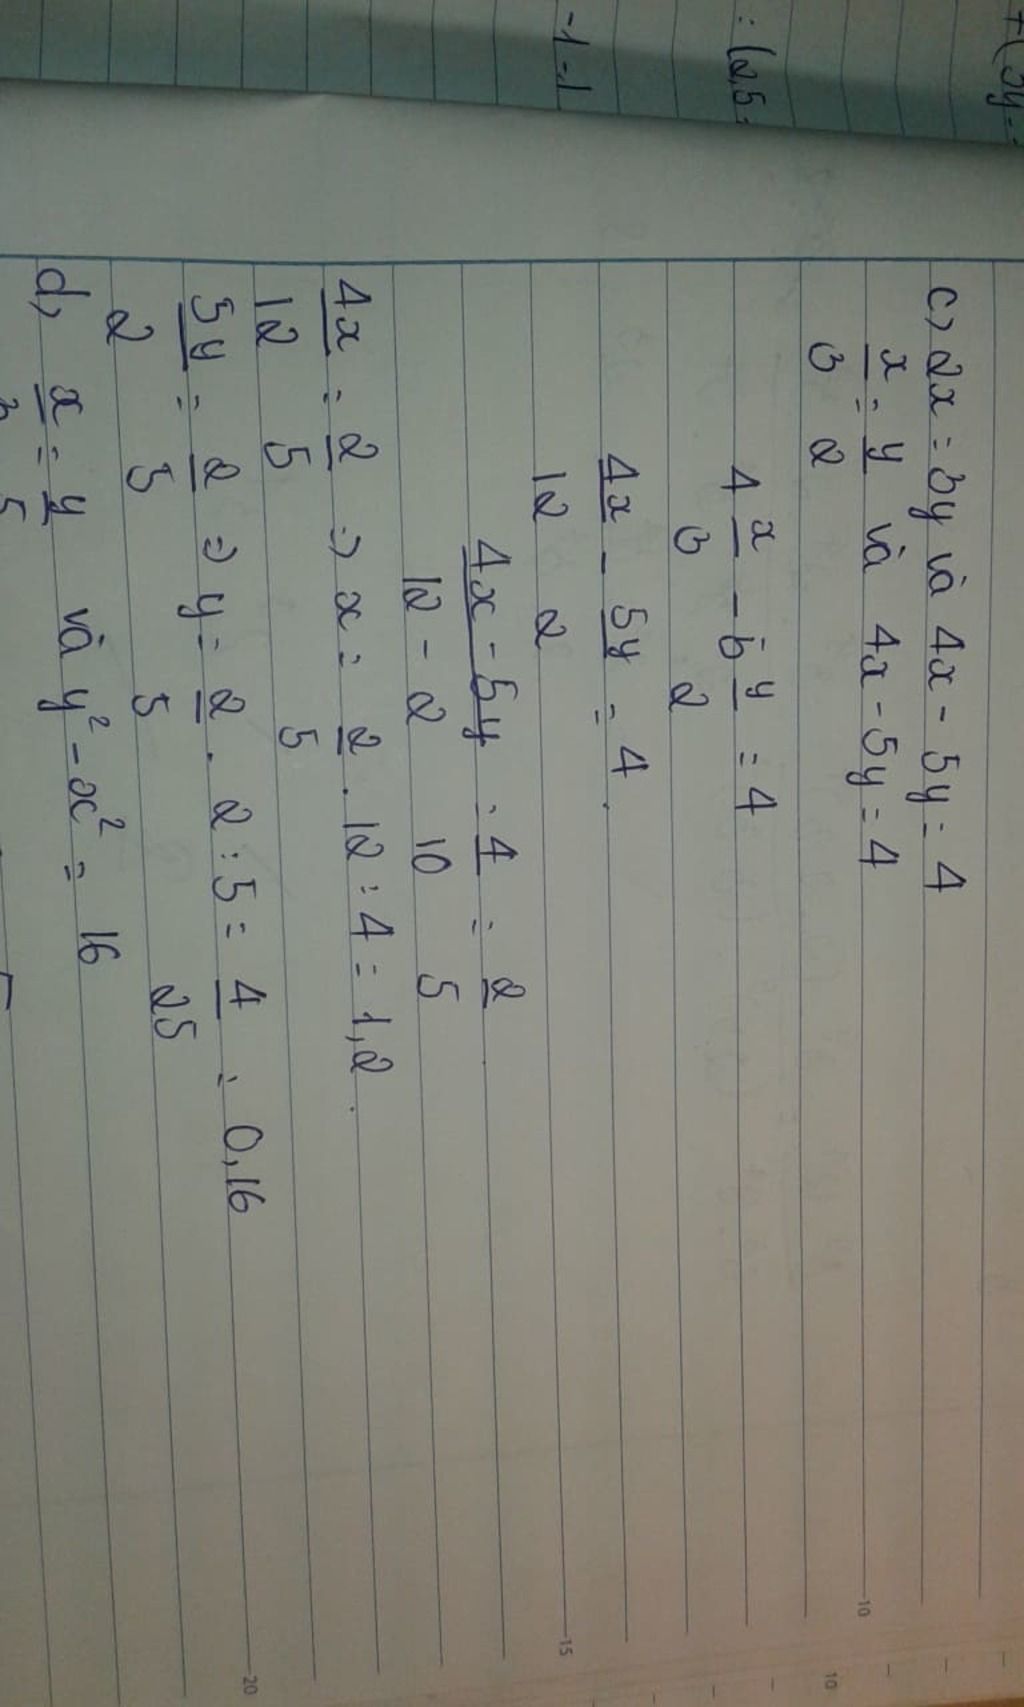 +(3y-
: (2,5
-1=1
c) 2x = 3y và 4x - 5y = 4
x/3 = y/2 và 4x - 5y = 4
4 x/3 - 5 y/2 = 4
4x/12 - 5y/2 = 4
4x - 5y/12 - 2 = 4/10 = 2/5
4x/12 = 2/5 => x = 2/5 . 12 : 4 = 1,2
5y/2 = 2/5 => y = 2/5 . 2 : 5 = 4/25 = 0,16
d) x/3 = y/5 và y² - x² = 16
10
15
20
10